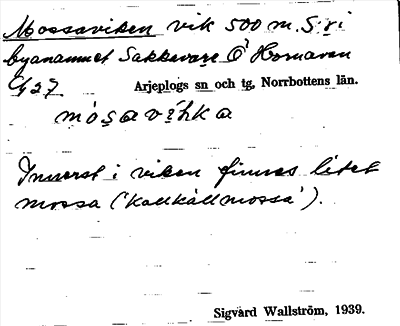 Mossaviken vik 500 m. S. r i
byanamnet Sakkavare Ö Hornavan
G 27
Arjeplogs sn och tg, Norrbottens län.
mósavìhka
Innerst i viken finnes litet
mossa ('kallkällmossa').
Sigvard Wallström, 1939.